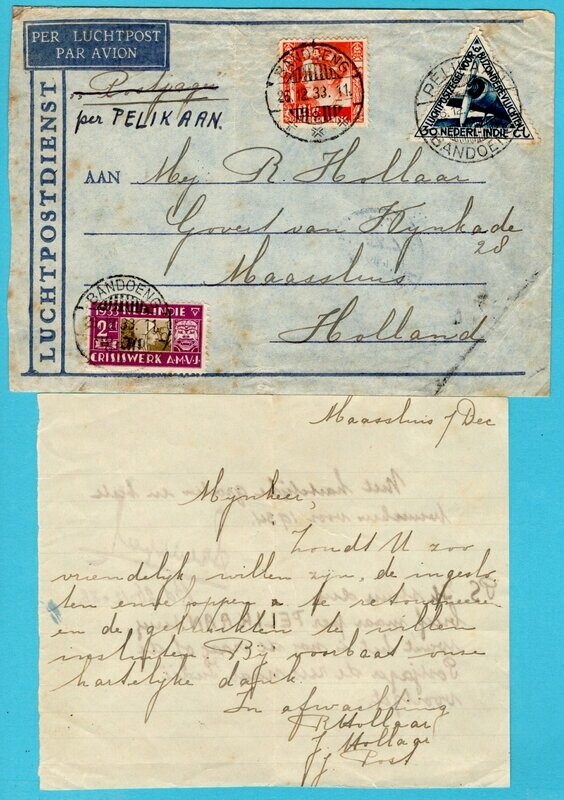 PER LUCHTPOST
PAR AVION
LUCHTPOSTDIENST
Postjager
per PELIKAAN.
BANDOENG
26.12.33.11
PELIKAAN
BANDOENG
LUCHTPOSTZEGEL VOOR BIJZONDERE VLUCHTEN
30 NEDERL-INDIE CT
AAN
Mej R. Hollaar
Govert van Wijnkade
28
Maassluis
Holland
BANDOENG
1933 INDIE
2
CRISISWERK A.M.V.J.
Maassluis 7 Dec
Mijnheer,
Zoudt U zoo
vriendelijk willen zijn, de ingeslo
ten enveloppen te retourneeren
en de
insluiten Bij voorbaat onze
hartelijke dank.
In afwachting
R Hollaar
J. Hollaar
J Post